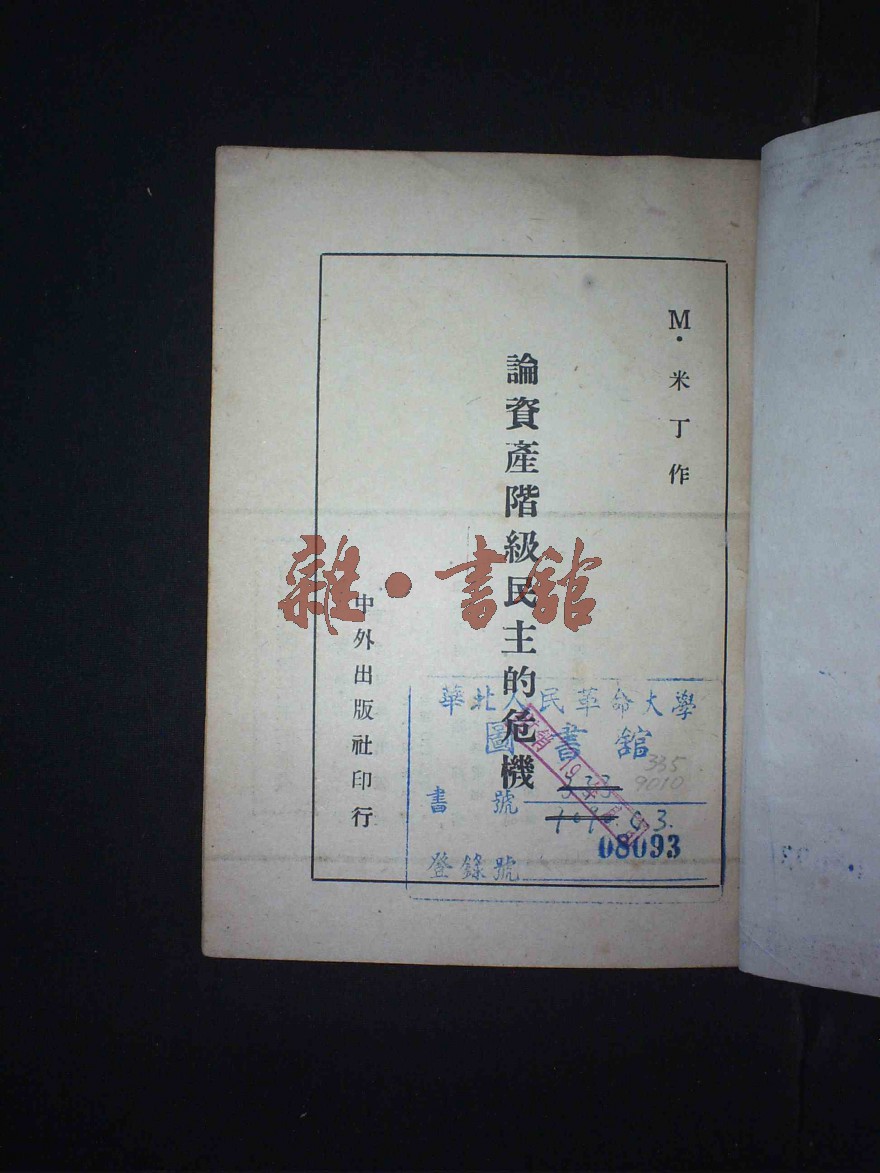 M·米丁作
論資產階級民主的危機
中外出版社印行
雜·書館
華北人民革命大學
圖書館
335
9010
書號
933
登錄號
08093